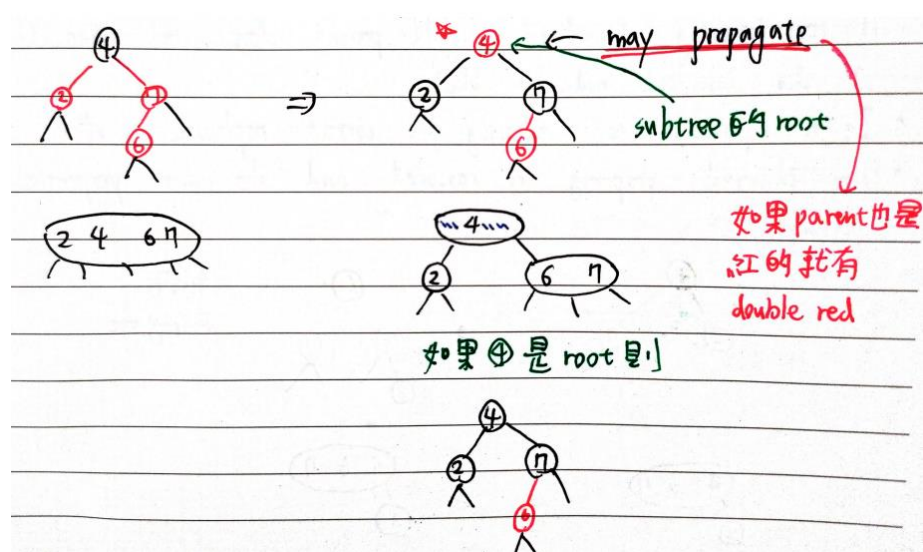 4
☆ 4 ← may propagate
2 7
⇒
2 7
subtree的root
6
6
2 4 6 7
4
如果parent也是
紅的就有
double red
2
6 7
如果④是root則
4
2 7
6